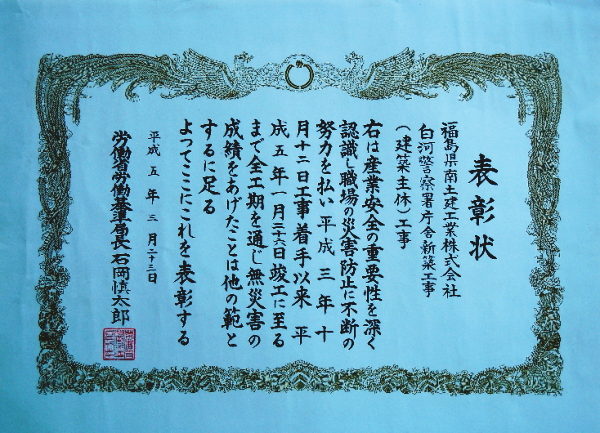 表彰状
福島県南土建工業株式会社
白河警察署庁舎新築工事
(建築主体)工事
右は産業安全の重要性を深く
認識し職場の災害防止に不断の
努力を払い平成三年十
月十二日工事着手以来平
成五年一月二十六日竣工に至る
まで全工期を通じ無災害の
成績をあげたことは他の範と
するに足る
よってここにこれを表彰する
平成五年三月二十二日
労働省労働基準局長石岡慎太郎